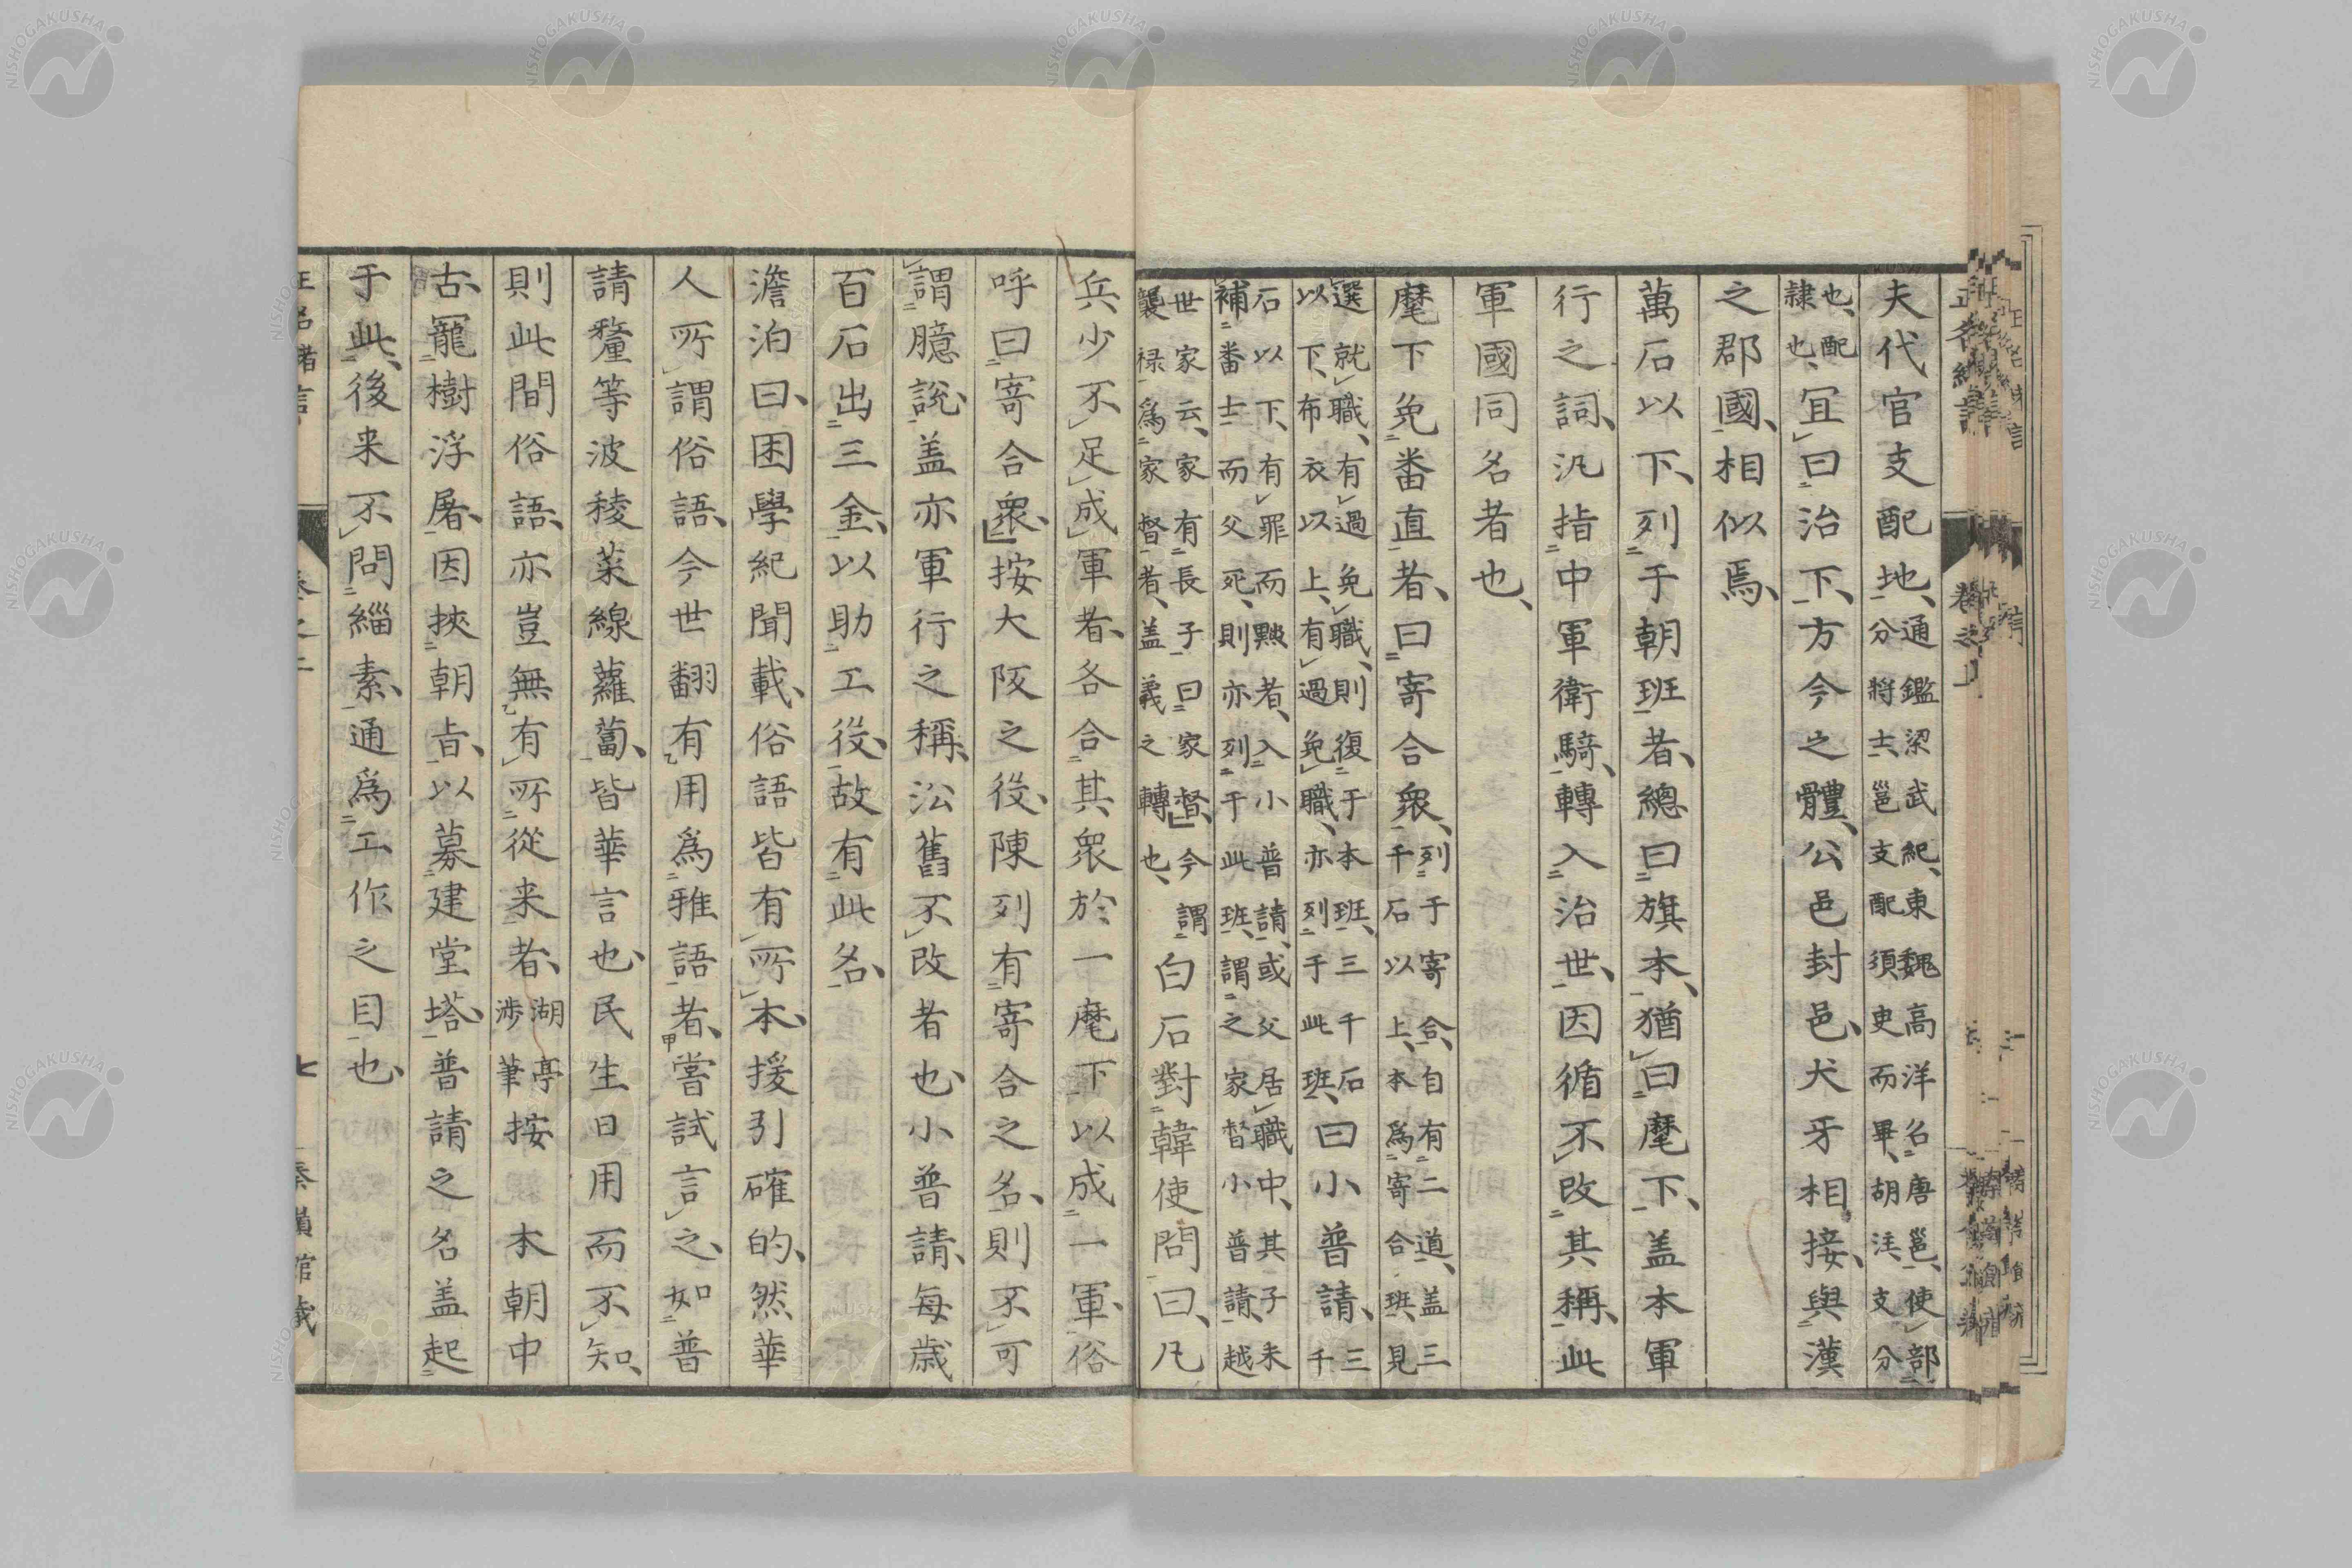 夫代官支配地、通鑑梁武紀、東魏高洋名唐邕、使部
分將士、邕支配須吏而畢、胡注、支分
也、配
隷也、宜曰治下、方今之體、公邑封邑、犬牙相接、與漢
之郡國、相似焉、
萬石以下、列于朝班者、總曰旗本、猶曰麾下、盖本軍
行之詞、汎指中軍衛騎、轉入治世、因循不改其稱、此
軍國同名者也、
麾下免番直者、曰寄合衆、列于寄合、自有二道、盖三
千石以上、本爲寄合班、見
選就職、有過免職、則復于本班、三千石
以下、布衣以上、有過免職、亦列于此班、曰小普請、三
千
石以下、有罪而黜者、入小普請、或父居職中、其子未
補番士而父死、則亦列于此班、謂之家督小普請、越
世家云、家有長子曰家督、今謂
襲禄爲家督者、盖義之轉也、白石對韓使問曰、凡
兵少不足成軍者、各合其衆於一麾下以成一軍、俗
呼曰寄合衆、按大阪之役、陳列有寄合之名、則不可
謂臆說、盖亦軍行之稱、㳂舊不改者也、小普請、每歳
百石出三金、以助工役、故有此名、
澹泊曰、困學紀聞載、俗語皆有所本、援引確的、然華
人所謂俗語、今世翻有用爲雅語者、嘗試言之、如普
請釐等波稜菜線蘿蔔、皆華言也、民生日用而不知、
則此間俗語、亦豈無有所從来者、湖亭
渉筆按本朝中
古、寵樹浮屠、因挾朝旨、以募建堂塔、普請之名盖起
于此、後来不問緇素、通爲工作之目也、